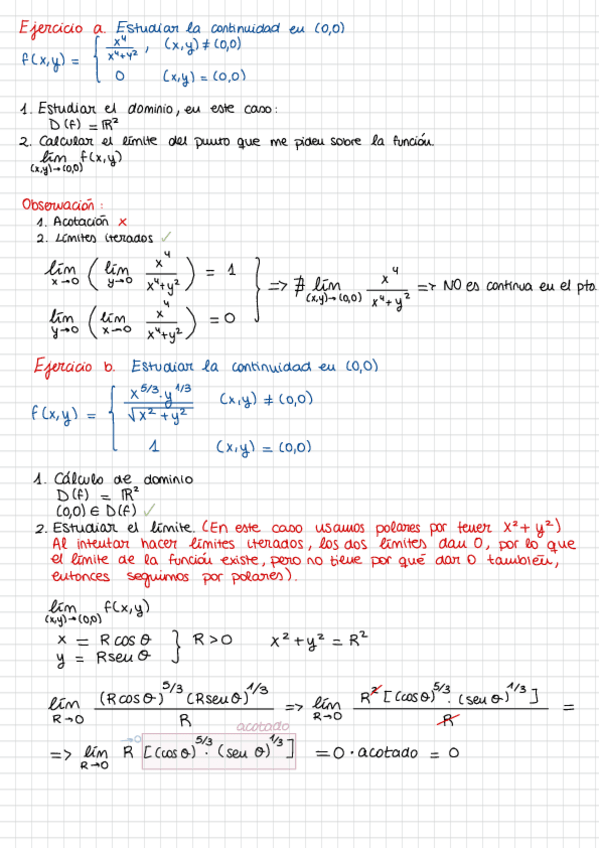 Ejercicio a. Estudiar la continuidad en (0,0)
f(x,y) = { x⁴/(x⁴+y²), (x,y) ≠ (0,0)
0 (x,y) = (0,0)
1. Estudiar el dominio, en este caso:
D(f) = ℝ²
2. Calcular el límite del punto que me piden sobre la función.
lím f(x,y)
(x,y)→(0,0)
Observación:
1. Acotación ×
2. Límites iterados ✓
lím x→0 ( lím y→0 x⁴/(x⁴+y²) ) = 1
lím y→0 ( lím x→0 x⁴/(x⁴+y²) ) = 0
} => ∄ lím (x,y)→(0,0) x⁴/(x⁴+y²) => NO es continua en el pto.
Ejercicio b. Estudiar la continuidad en (0,0)
f(x,y) = { x^5/3 · y^1/3 / √(x²+y²) (x,y) ≠ (0,0)
1 (x,y) = (0,0)
1. Cálculo de dominio
D(f) = ℝ²
(0,0) ∈ D(f) ✓
2. Estudiar el límite. (En este caso usamos polares por tener x²+y²)
Al intentar hacer límites iterados, los dos límites dan 0, por lo que
el límite de la función existe, pero no tiene por qué dar 0 también,
entonces seguimos por polares).
lím f(x,y)
(x,y)→(0,0)
x = R cos θ
y = R sen θ
} R > 0 x² + y² = R²
lím R→0 (R cos θ)^5/3 (R sen θ)^1/3 / R => lím R→0 R² [(cos θ)^5/3 · (sen θ)^1/3] / R =
→0 acotado
=> lím R→0 R [(cos θ)^5/3 · (sen θ)^1/3] = 0 · acotado = 0